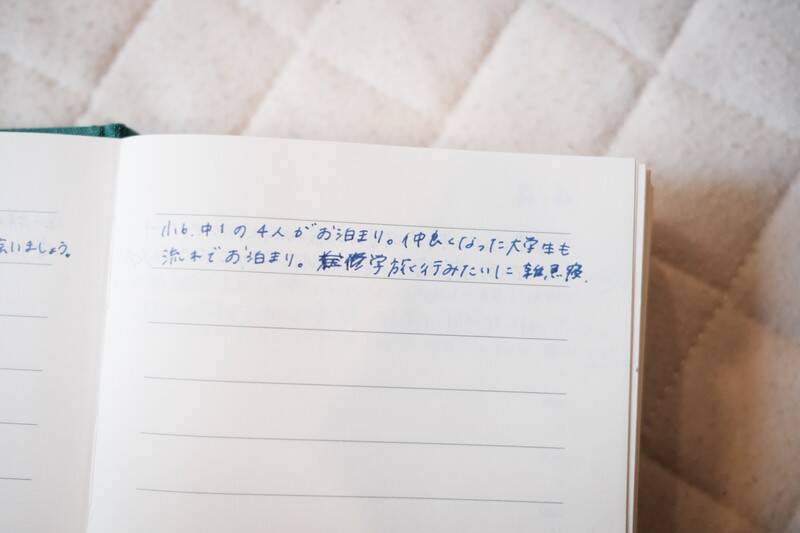 いましょう。
小6、中1の4人がお泊まり。仲良くなった大学生も
流れでお泊まり。修学旅行みたいに